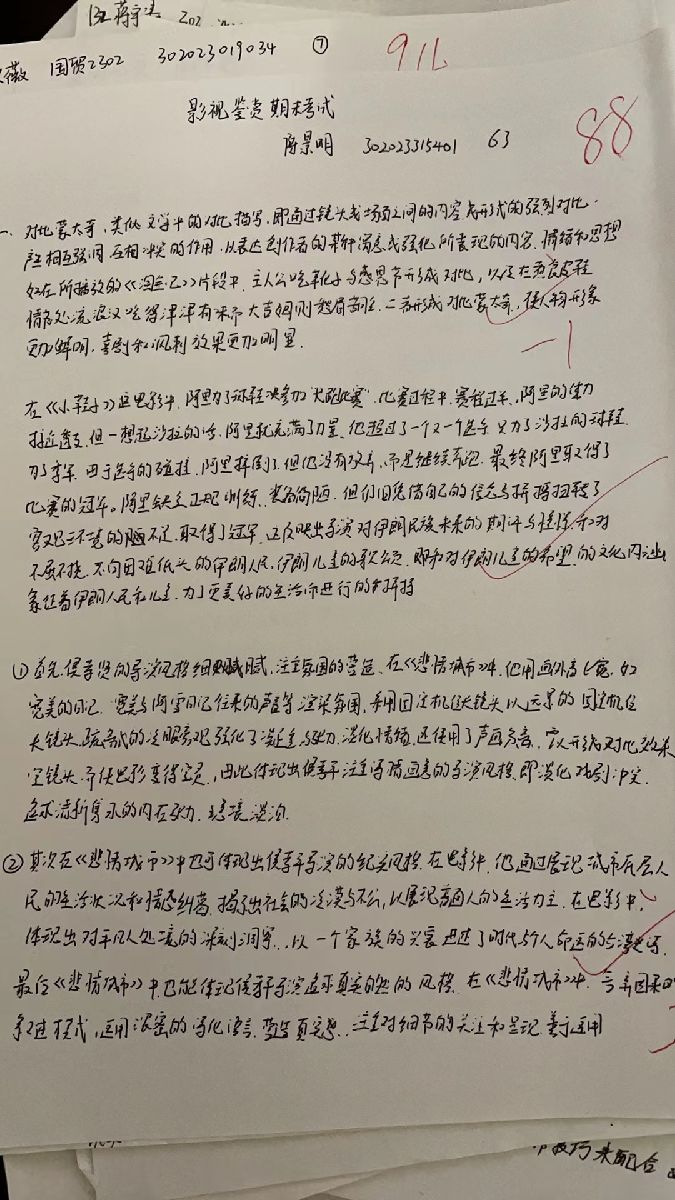 国贸2302 302023019034 ⑦
916
影视鉴赏期末考试
陈景明 302023315401 63
88
一、对比蒙太奇,类似文学中的对比描写,即通过镜头或场面之间的内容或形式的强烈对比
产生相互强调、互相冲突的作用,以表达创作者的某种寓意或强化所表现的内容、情绪和思想
如在所播放的《淘金记》片段中,主人公吃靴子与感恩节形成对比,以及在煮食皮鞋
情节处流浪汉吃得津津有味而大吉姆则愁眉苦脸,二者形成对比蒙太奇,使人物形象
更加鲜明,喜剧和讽刺效果更加明显.
-1
在《小鞋子》这电影中,阿里为了球鞋决参加"长跑比赛",比赛过程中,赛程过半,阿里的体力
接近透支,但一想起沙拉的话,阿里就充满了力量,他超过了一个又一个选手 只为了沙拉的球鞋
为了季军,由于选手的碰撞,阿里摔倒了,但他没有放弃,而是继续奔跑,最终阿里取得了
比赛的冠军,阿里缺乏正规训练,装备简陋,但们旧凭借自己的信念与拼搏扭转了
客观环境的不足,取得了冠军,这反映出导演对伊朗民族未来的期许与
不屈不挠、不向困难低头的伊朗人民、伊朗儿童的歌颂,即和对伊朗儿童的希望,的文化内涵
象征着伊朗人民和儿童,为了更美好的生活而进行的拼搏
① 首先,侯孝贤的导演风格细腻,注重氛围的营造,在《悲情城市》中,他用画外音 如
宽美的日记、宽美与阿雪日记往来的声音等渲染氛围,采用固定机位长镜头以远景的固定机位
长镜头,疏离式的冷眼旁观强化了 淡化情绪,还使用了声画 形成对比效果
空镜头,亦使电影变得空灵,因此体现出侯孝贤注重写情写意的导演风格,即淡化戏剧冲突
追求 的内在张力,
② 其次在《悲情城市》中也可体现出侯孝贤导演的纪实风格,在电影中,他通过展现城市底层人
民的生活状况和情感纠葛,揭示出社会的冷漠与不公,以展现普通人的生活为主,在电影中,
体现出对平凡人处境的深刻洞察,以一个家族的兴衰 了时代与个人命运的
最后《悲情城市》中也能体现侯孝贤导演追求真实自然的风格,在《悲情城市》中,
模式,运用 的 语言,营造真实感,注重对细节的关注和呈现,善于运用
技巧来配合